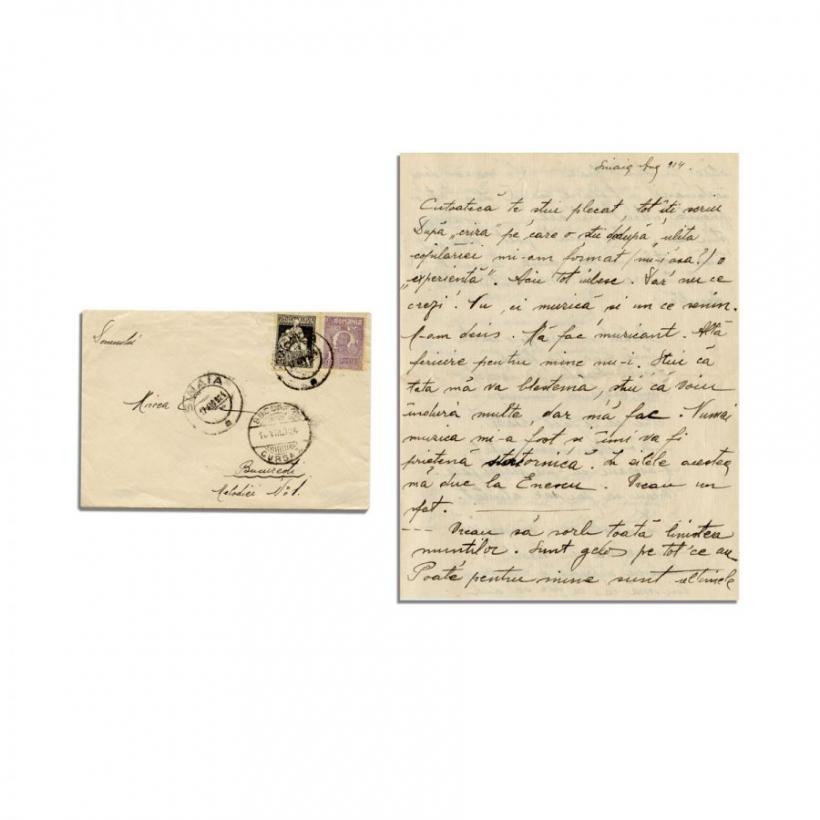 Domnului
Mircea
București
Melodiei No 1.
SINAIA
ROMANIA
BUCUREȘTI
CURSA
Sinaia Aug 924.
Cutoatecă te știu plecat, tot îți scriu
După „criza” pe care o știi după „ulița
copilăriei mi-am format (nu-i așa?) o
„experiență”. Acu tot iubesc. Dar nu ce
crezi. Nu, ci muzică și un ce senin.
M-am decis. Mă fac muzicant. Altă
fericire pentru mine nu-i. Știu că
tata mă va blestema, știu că voiu
îndura multe, dar mă fac. Numai
muzica mi-a fost și îmi va fi
prietenă statornică. În zilele acestea
mă duc la Enescu. Vreau un
sfat.
Vreau să sorb toată liniștea
munților. Sunt gelos pe tot ce au
Poate pentru mine sunt ultimele